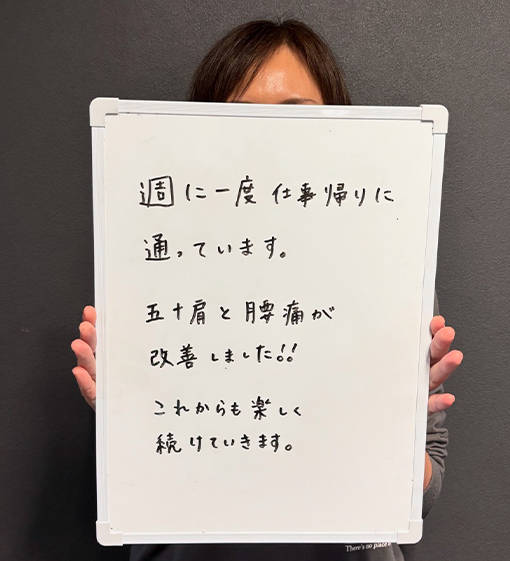 週に一度仕事帰りに
通っています。
五十肩と腰痛が
改善しました!!
これからも楽しく
続けていきます。
There's no place